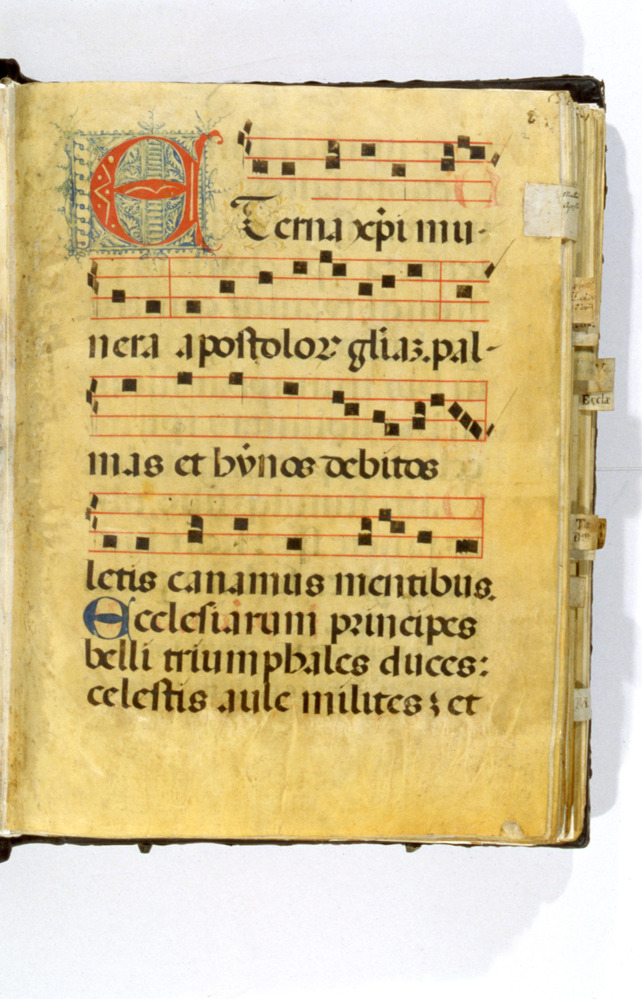 ETerna xp̄i mu-
nera apostoloꝝ gl̄iaꝫ. pal-
mas et hỳnos debitos
letis canamus mentibus.
Ecclesiarum principes
belli triumphales duces:
celestis aule milites ; et